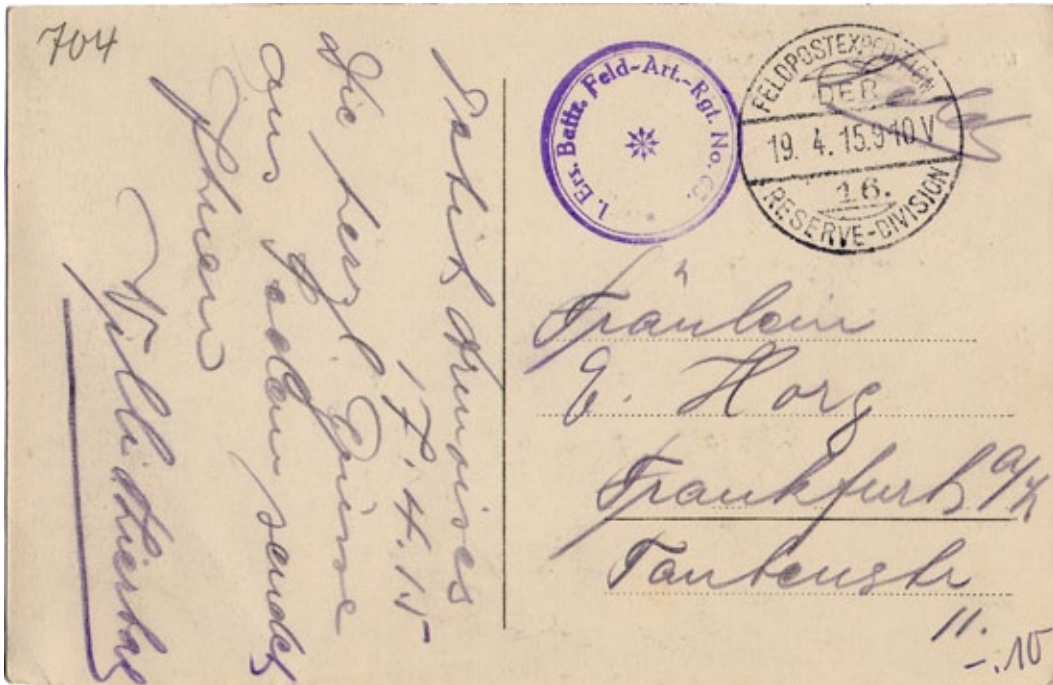 704
Armoises
17.4.15
Die herzl Grüsse
aus sendet
Ihnen
Willi
1. Ers. Battr. Feld-Art.-Rgt. No.
FELDPOSTEXPEDITION
DER
19. 4. 15. 9-10 V
16.
RESERVE-DIVISION
Fräulein
E. Horg
Frankfurt a/M
Taubenstr
11.
-.10